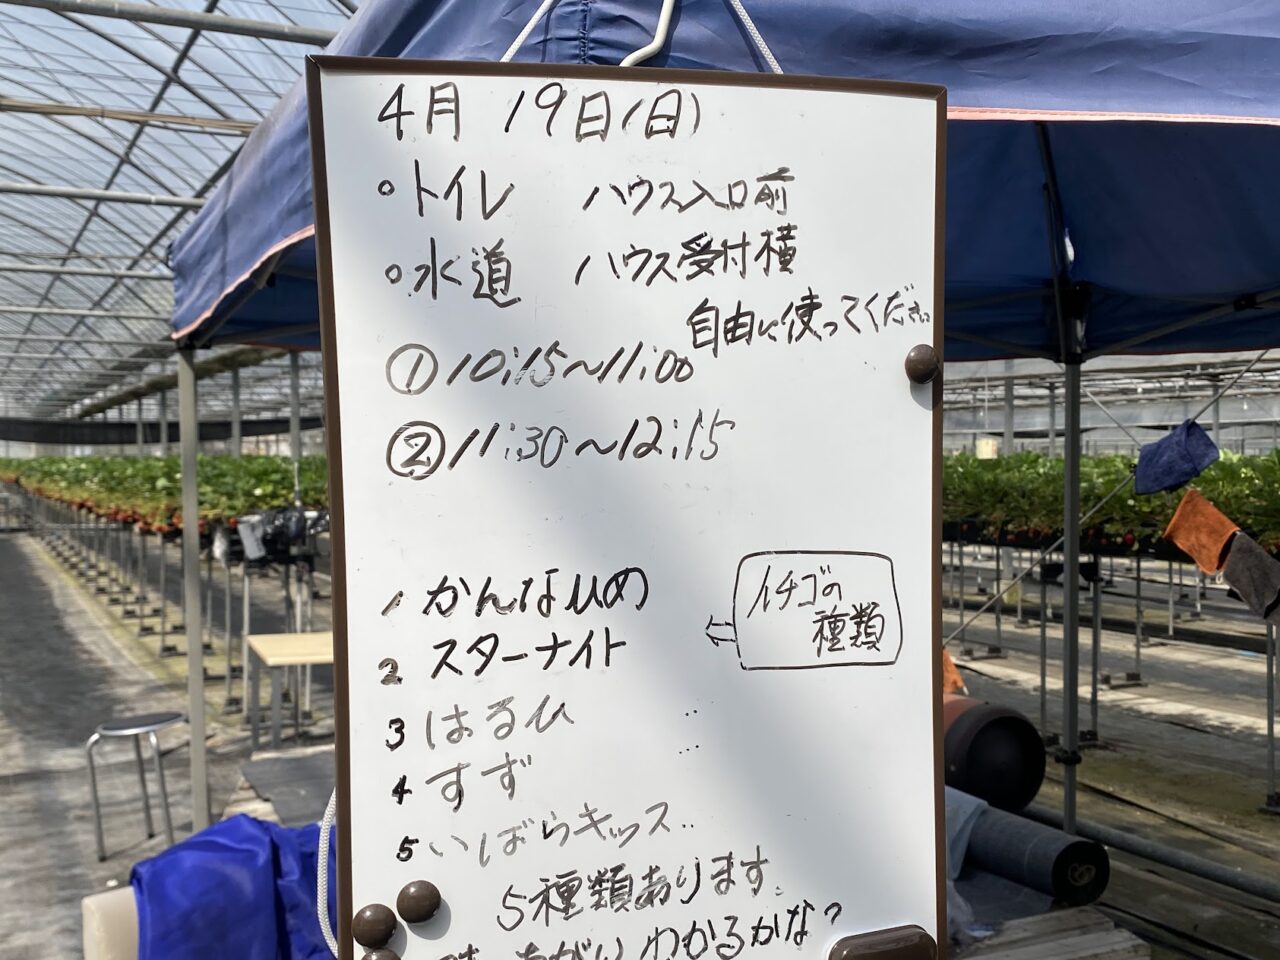 4月 19日(日)
。トイレ ハウス入口前
。水道 ハウス受付横
自由に使ってください
①10:15~11:00
②11:30~12:15
イチゴの
種類
1 かんなひめ
2 スターナイト
3 はるひ
4 すず
5 いばらキッス
5種類あります。
ちがいわかるかな?